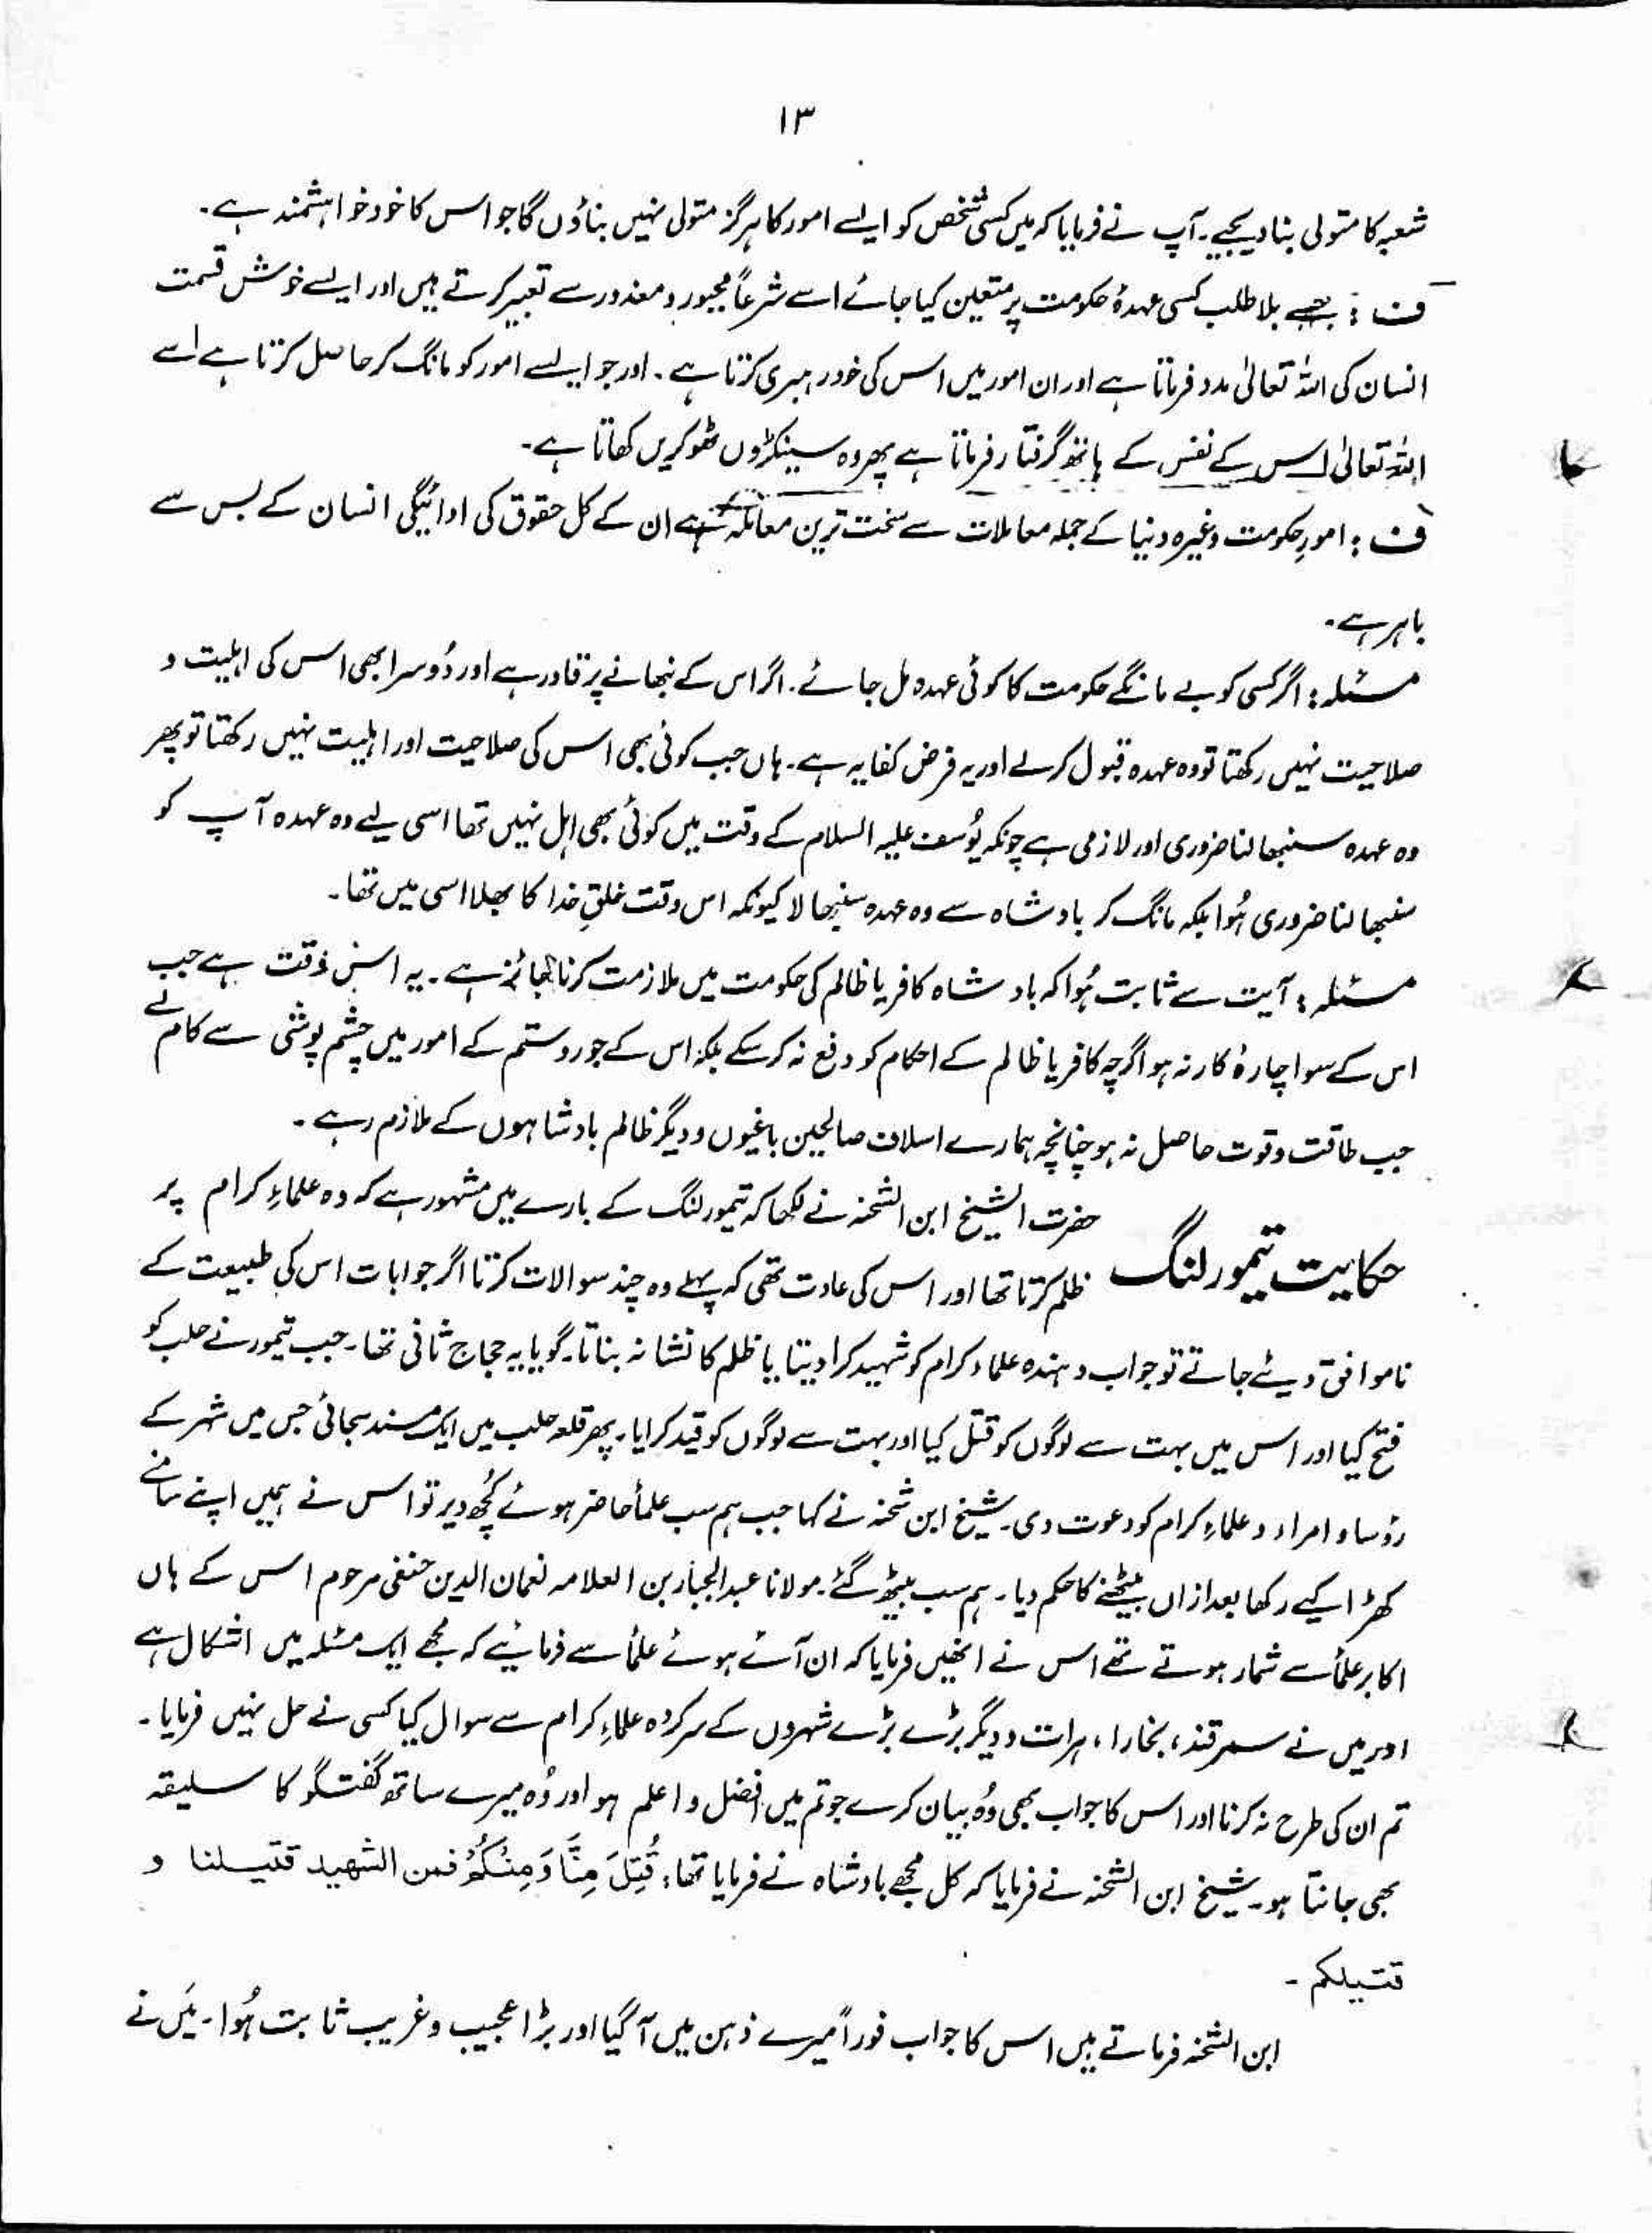 ۱۳
شعبہ کا متولی بنا دیجیے۔ آپ نے فرمایا کہ میں کسی شخص کو ایسے امور کا ہرگز متولی نہیں بناؤں گا جو اس کا خود خواہشمند ہے۔
ف : جسے بلا طلب کسی عہدۂ حکومت پر متعین کیا جائے اسے شرعاً مجبور و معذور سے تعبیر کرتے ہیں اور ایسے خوش قسمت
انسان کی اللہ تعالیٰ مدد فرماتا ہے اور ان امور میں اس کی خود رہبری کرتا ہے۔ اور جو ایسے امور کو مانگ کر حاصل کرتا ہے اسے
اللہ تعالیٰ اس کے نفس کے ہاتھ گرفتار فرماتا ہے پھر وہ سینکڑوں ٹھوکریں کھاتا ہے۔
ف : امورِ حکومت وغیرہ دنیا کے جملہ معاملات سے سخت ترین معاملہ ہے ان کے کل حقوق کی ادائیگی انسان کے بس سے
باہر ہے۔
مسئلہ : اگر کسی کو بے مانگے حکومت کا کوئی عہدہ مل جائے۔ اگر اس کے نبھانے پر قادر ہے اور دُوسرا بھی اس کی اہلیت و
صلاحیت نہیں رکھتا تو وہ عہدہ قبول کرلے اور یہ فرض کفایہ ہے۔ ہاں جب کوئی بھی اس کی صلاحیت اور اہلیت نہیں رکھتا تو پھر
وہ عہدہ سنبھالنا ضروری اور لازمی ہے چونکہ یُوسف علیہ السلام کے وقت میں کوئی بھی اہل نہیں تھا اسی لیے وہ عہدہ آپ کو
سنبھالنا ضروری ہُوا بلکہ مانگ کر بادشاہ سے وہ عہدہ سنبھالا کیونکہ اس وقت خلقِ خدا کا بھلا اسی میں تھا۔
مسئلہ : آیت سے ثابت ہُوا کہ بادشاہ کافر یا ظالم کی حکومت میں ملازمت کرنا جائز ہے۔ یہ اس وقت ہے جب
اس کے سوا چارۂ کار نہ ہو اگرچہ کافر یا ظالم کے احکام کو دفع نہ کرسکے بلکہ اس کے جور و ستم کے امور میں چشم پوشی سے کام لے
جب طاقت و قوت حاصل نہ ہو چنانچہ ہمارے اسلاف صالحین باغیوں و دیگر ظالم بادشاہوں کے ملازم رہے۔
حکایت تیمور لنگ حضرت الشیخ ابن الشحنہ نے لکھا کہ تیمور لنگ کے بارے میں مشہور ہے کہ وہ علماءِ کرام پر
ظلم کرتا تھا اور اس کی عادت تھی کہ پہلے وہ چند سوالات کرتا اگر جوابات اس کی طبیعت کے
ناموافق دیئے جاتے تو جواب دہندہ علماءِ کرام کو شہید کرا دیتا یا ظلم کا نشانہ بناتا۔ گویا یہ حجاج ثانی تھا۔ جب تیمور نے حلب کو
فتح کیا اور اس میں بہت سے لوگوں کو قتل کیا اور بہت سے لوگوں کو قید کرایا۔ پھر قلعہ حلب میں ایک مسند بچھائی جس میں شہر کے
رؤسا و امراء و علماءِ کرام کو دعوت دی۔ شیخ ابن شحنہ نے کہا جب ہم سب علماء حاضر ہوئے کُچھ دیر تو اس نے ہمیں اپنے سامنے
کھڑا کیے رکھا بعد ازاں بیٹھنے کا حکم دیا۔ ہم سب بیٹھ گئے۔ مولانا عبدالجبار بن العلامہ نعمان الدین حنفی مرحوم اس کے ہاں
اکابر علماء سے شمار ہوتے تھے اس نے انھیں فرمایا کہ ان آئے ہوئے علماء سے فرمائیے کہ مجھے ایک مسئلہ میں اشکال ہے
اور میں نے سمرقند، بخارا، ہرات و دیگر بڑے بڑے شہروں کے سرکردہ علماءِ کرام سے سوال کیا کسی نے حل نہیں فرمایا۔
تم ان کی طرح نہ کرنا اور اس کا جواب بھی وُہ بیان کرے جو تم میں افضل و اعلم ہو اور وُہ میرے ساتھ گفتگو کا سلیقہ
بھی جانتا ہو۔ شیخ ابن الشحنہ نے فرمایا کہ کل مجھے بادشاہ نے فرمایا تھا: قُتِلَ مِنَّا وَمِنْکُمْ فمن الشھید قتیلنا و
قتیلکم۔
ابن الشحنہ فرماتے ہیں اس کا جواب فوراً میرے ذہن میں آگیا اور بڑا عجیب و غریب ثابت ہُوا۔ میَں نے